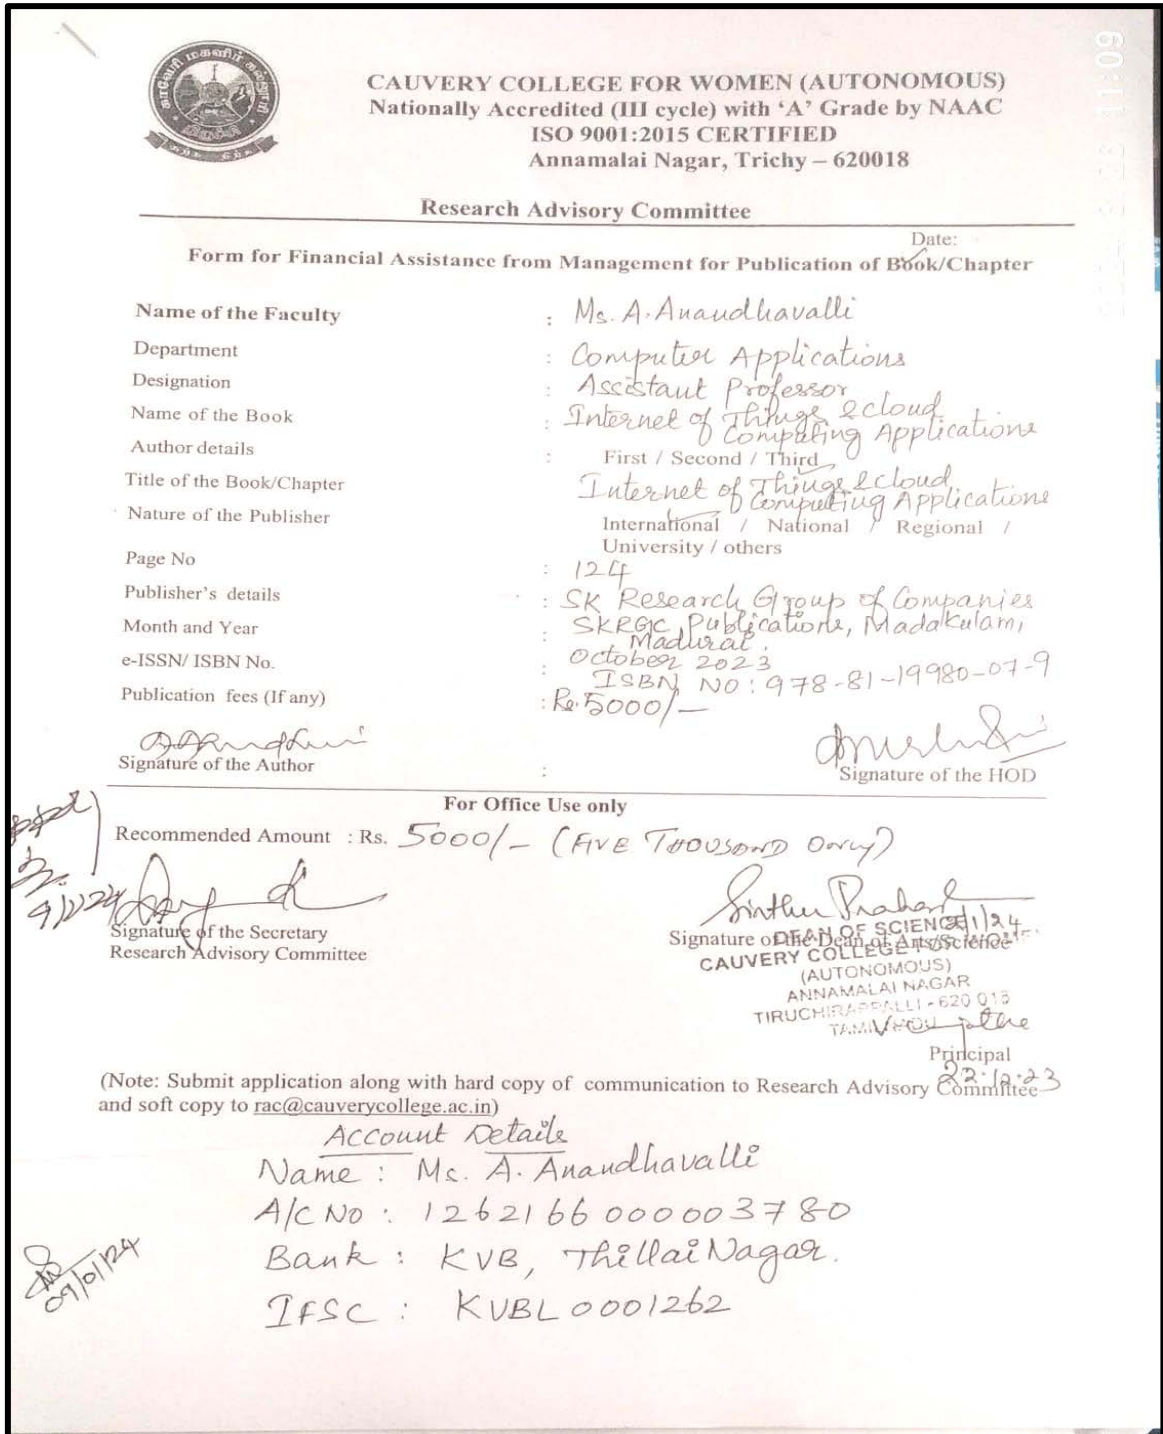 காவேரி மகளிர் கல்லூரி
திருச்சி
CAUVERY COLLEGE FOR WOMEN (AUTONOMOUS)
Nationally Accredited (III cycle) with ‘A’ Grade by NAAC
ISO 9001:2015 CERTIFIED
Annamalai Nagar, Trichy – 620018
11:09
Research Advisory Committee
Date:
Form for Financial Assistance from Management for Publication of Book/Chapter
Name of the Faculty : Ms. A. Anandhavalli
Department : Computer Applications
Designation : Assistant Professor
Name of the Book : Internet of Things & Cloud
Computing Applications
Author details : First / Second / Third
Title of the Book/Chapter Internet of Things & Cloud
Computing Applications
Nature of the Publisher International / National / Regional /
University / others
Page No : 124
Publisher's details : SK Research Group of Companies
SKRGC Publications, Madakulam,
Madurai.
Month and Year : October 2023
e-ISSN/ ISBN No. : ISBN NO : 978-81-19980-07-9
Publication fees (If any) : Rs. 5000/-
Signature of the Author :
Signature of the HOD
For Office Use only
Recommended Amount : Rs. 5000/- (FIVE THOUSAND ONLY)
9/1/24
Signature of the Secretary
Research Advisory Committee
Signature of the Dean of Arts/Science
DEAN OF SCIENCE
CAUVERY COLLEGE
(AUTONOMOUS)
ANNAMALAI NAGAR
TIRUCHIRAPPALLI - 620 018
Principal
22.12.23
(Note: Submit application along with hard copy of communication to Research Advisory Committee
and soft copy to rac@cauverycollege.ac.in)
Account Details
Name : Ms. A. Anandhavalli
A/C No : 1262166000003780
Bank : KVB, Thillai Nagar.
IFSC : KVBL0001262
09/01/24